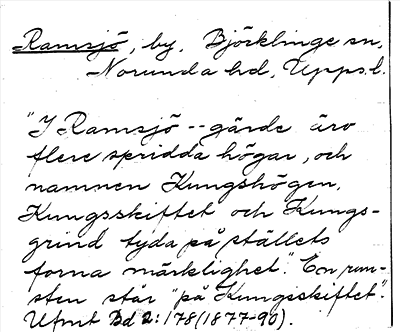 Ramsjö, by, Björklinge sn,
Norunda hd, Upps. l.
"I Ramsjö -- gärde äro
flere spridda högar, och
namnen Kungshögen,
Kungsskiftet och Kungs-
grind tyda på ställets
forna märklighet". En run-
sten står "på Kungsskiftet".
Ufmt Bd 2:178 (1877-90).